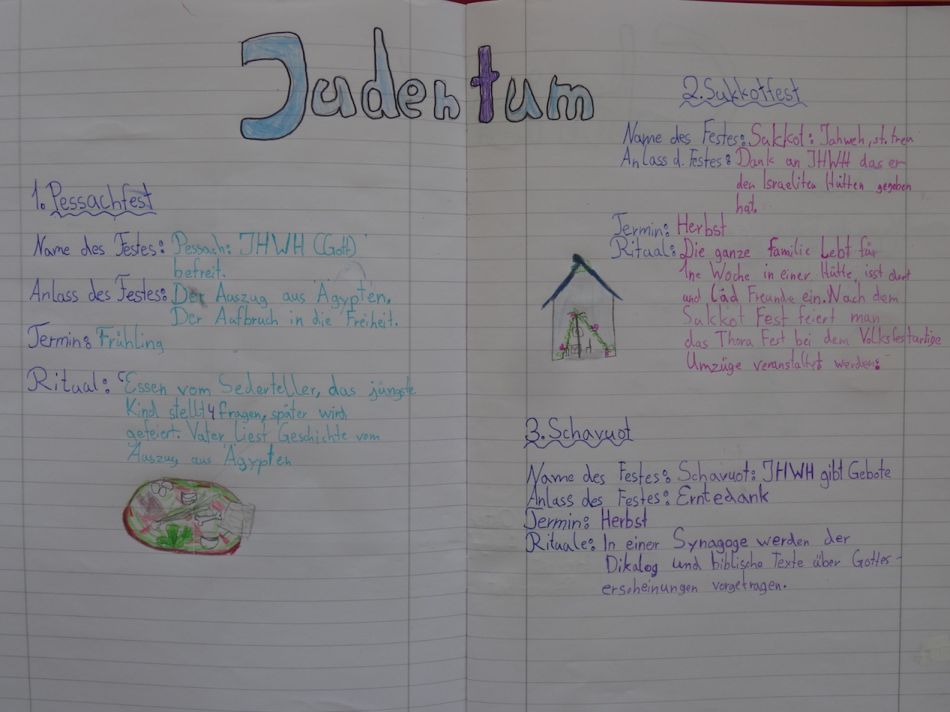 Judentum
1. Pessachfest
Name des Festes: Pessach: JHWH (Gott)
befreit.
Anlass des Festes: Der Auszug aus Ägypten.
Der Aufbruch in die Freiheit.
Termin: Frühling
Ritual: Essen vom Sederteller, das jüngste
Kind stellt 4 fragen, später wird
gefeiert. Vater liest Geschichte vom
Auszug aus Ägypten
2. Sukkotfest
Name des Festes: Sukkot: Jahweh, ist treu
Anlass d. Festes: Dank an JHWH das er
den Israeliten Hütten gegeben
hat.
Termin: Herbst
Ritual: Die ganze familie Lebt für
1ne Woche in einer Hütte, isst dort
und läd Freunde ein. Nach dem
Sukkot Fest feiert man
das Thora Fest bei dem Volksfestartige
Umzüge veranstaltet werden.
3. Schavuot
Name des Festes: Schavuot: JHWH gibt Gebote
Anlass des Festes: Erntedank
Termin: Herbst
Rituale: In einer Synagoge werden der
Dikalog und biblische Texte über Gottes-
erscheinungen vorgetragen.